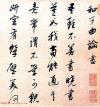 和子由論書
吾雖不善書曉書
莫如我苟能通其
意常謂不學可貌
妍容有顰璧美何